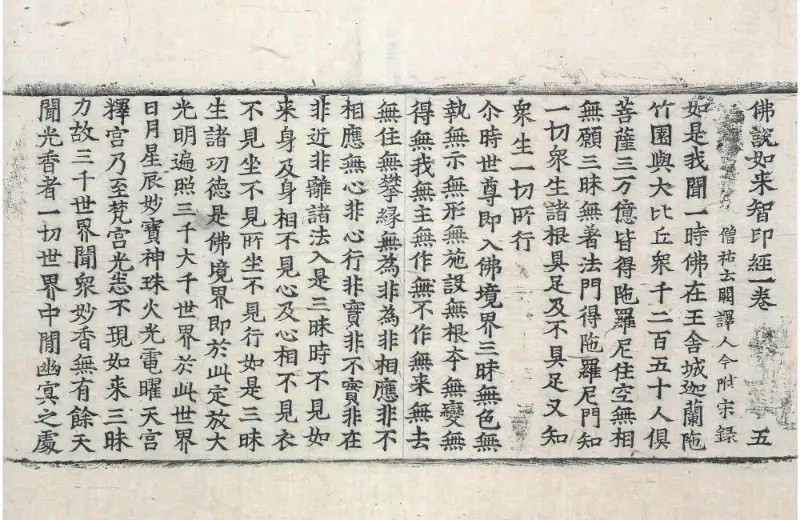 佛說如来智印經一卷 五
僧祐云闕譯人今附宋錄
如是我聞一時佛在王舍城迦蘭陁
竹園與大比丘衆千二百五十人俱
菩薩三万億皆得陁羅尼住空無相
無願三昧無著法門得陁羅尼門知
一切衆生諸根具足及不具足又知
衆生一切所行
尒時世尊即入佛境界三昧無色無
執無示無形無施設無根夲無變無
得無我無主無作無不作無来無去
無住無攀緣無為非為非相應非不
相應無心非心行非實非不實非在
非近非離諸法入是三昧時不見如
来身及身相不見心及心相不見衣
不見坐不見所坐不見行如是三昧
生諸功德是佛境界即於此定放大
光明遍照三千大千世界於此世界
日月星辰妙寶神珠火光電曜天宮
釋宮乃至梵宮光悉不現如来三昧
力故三千世界聞衆妙香無有餘天
聞光香者一切世界中閒幽冥之處